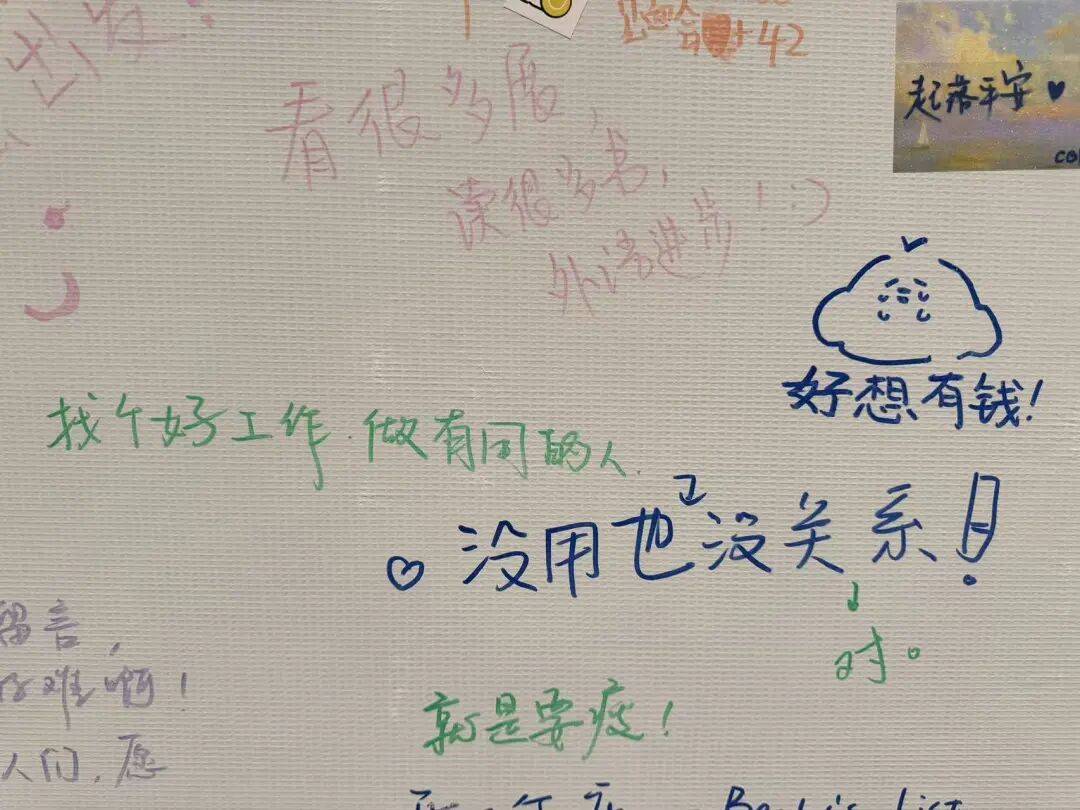 +42
起落平安
看很多展，
读很多书，
外语进步！:)
好想有钱！
找个好工作.做有用的人.
没用也没关系！
对。
留言，
难啊！
就是要疯！
人们，愿